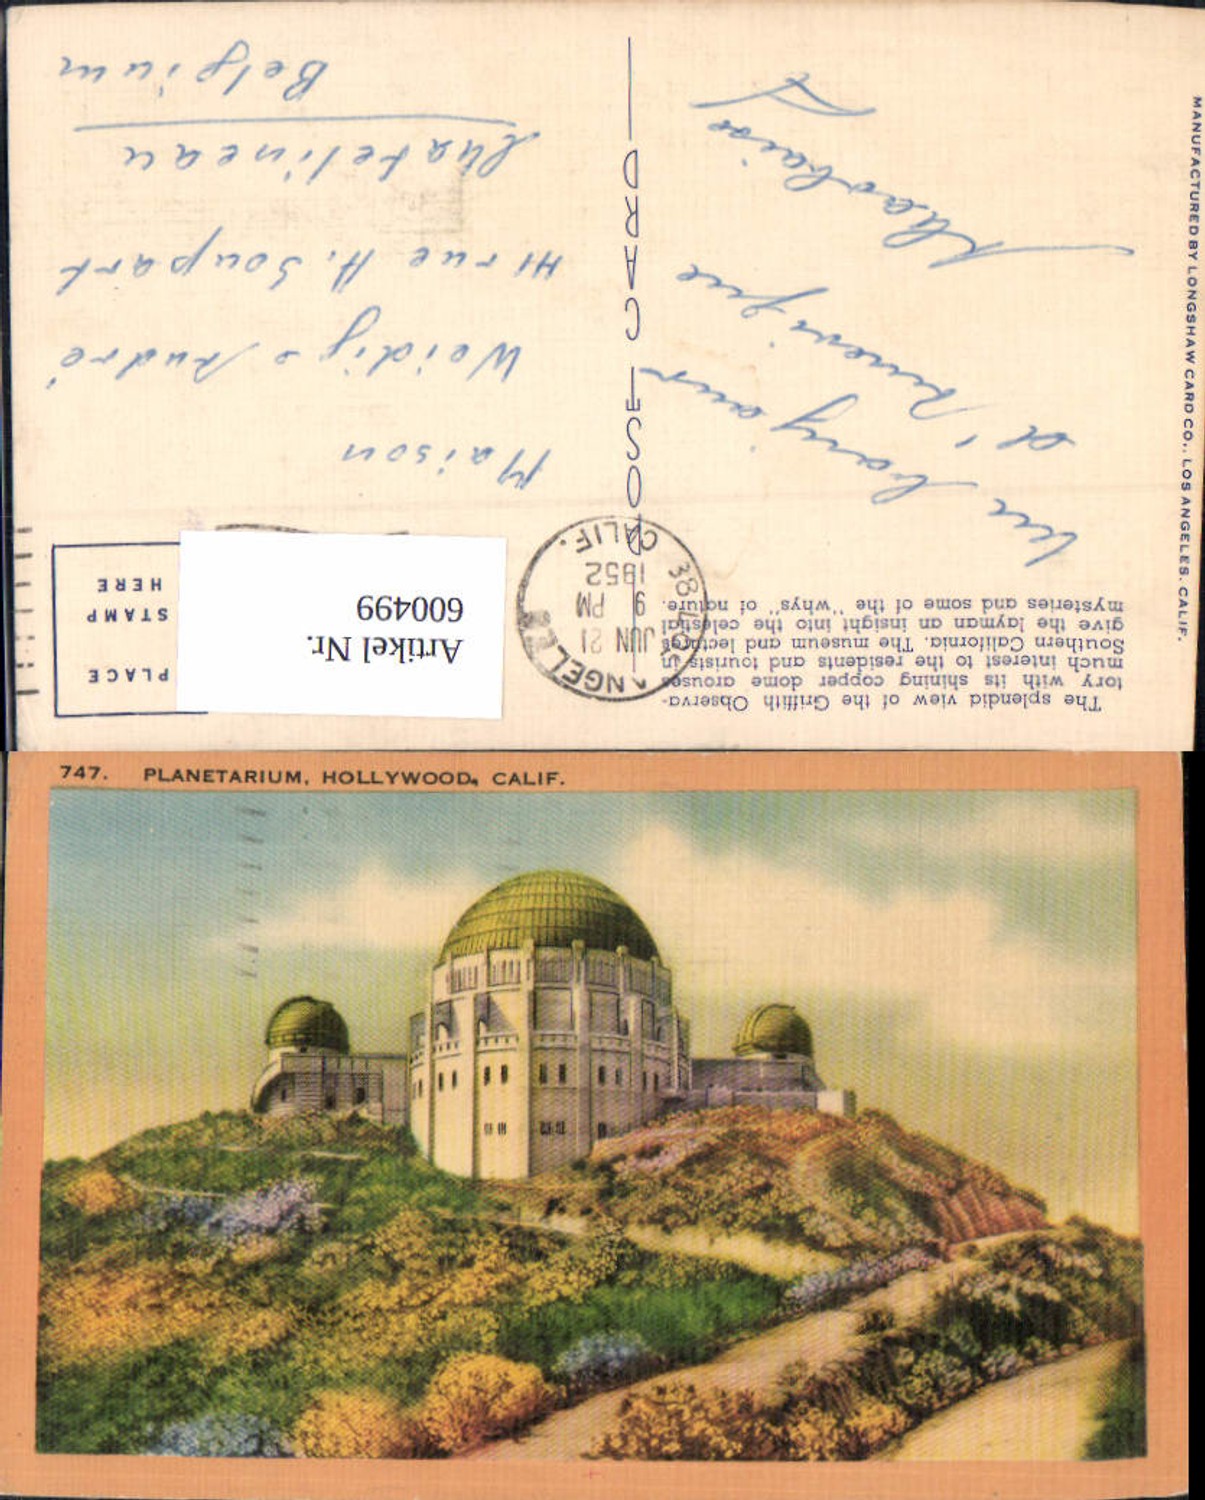 The splendid view of the Griffith Observa-
tory, with its shining copper dome arouses
much interest to the residents and tourists in
Southern California. The museum and lectures
give the layman an insight into the celestial
mysteries and some of the "whys" of nature.
Un bonjour
d'Amerique
POST CARD
ANGELES
CALIF.
JUN 21
9 PM
1952
38
Artikel Nr.
600499
PLACE
STAMP
HERE
Maison
Weidig - André
41 rue H. Soupart
Chatelineau
Belgium
MANUFACTURED BY LONGSHAW CARD CO., LOS ANGELES, CALIF.
747. PLANETARIUM, HOLLYWOOD, CALIF.